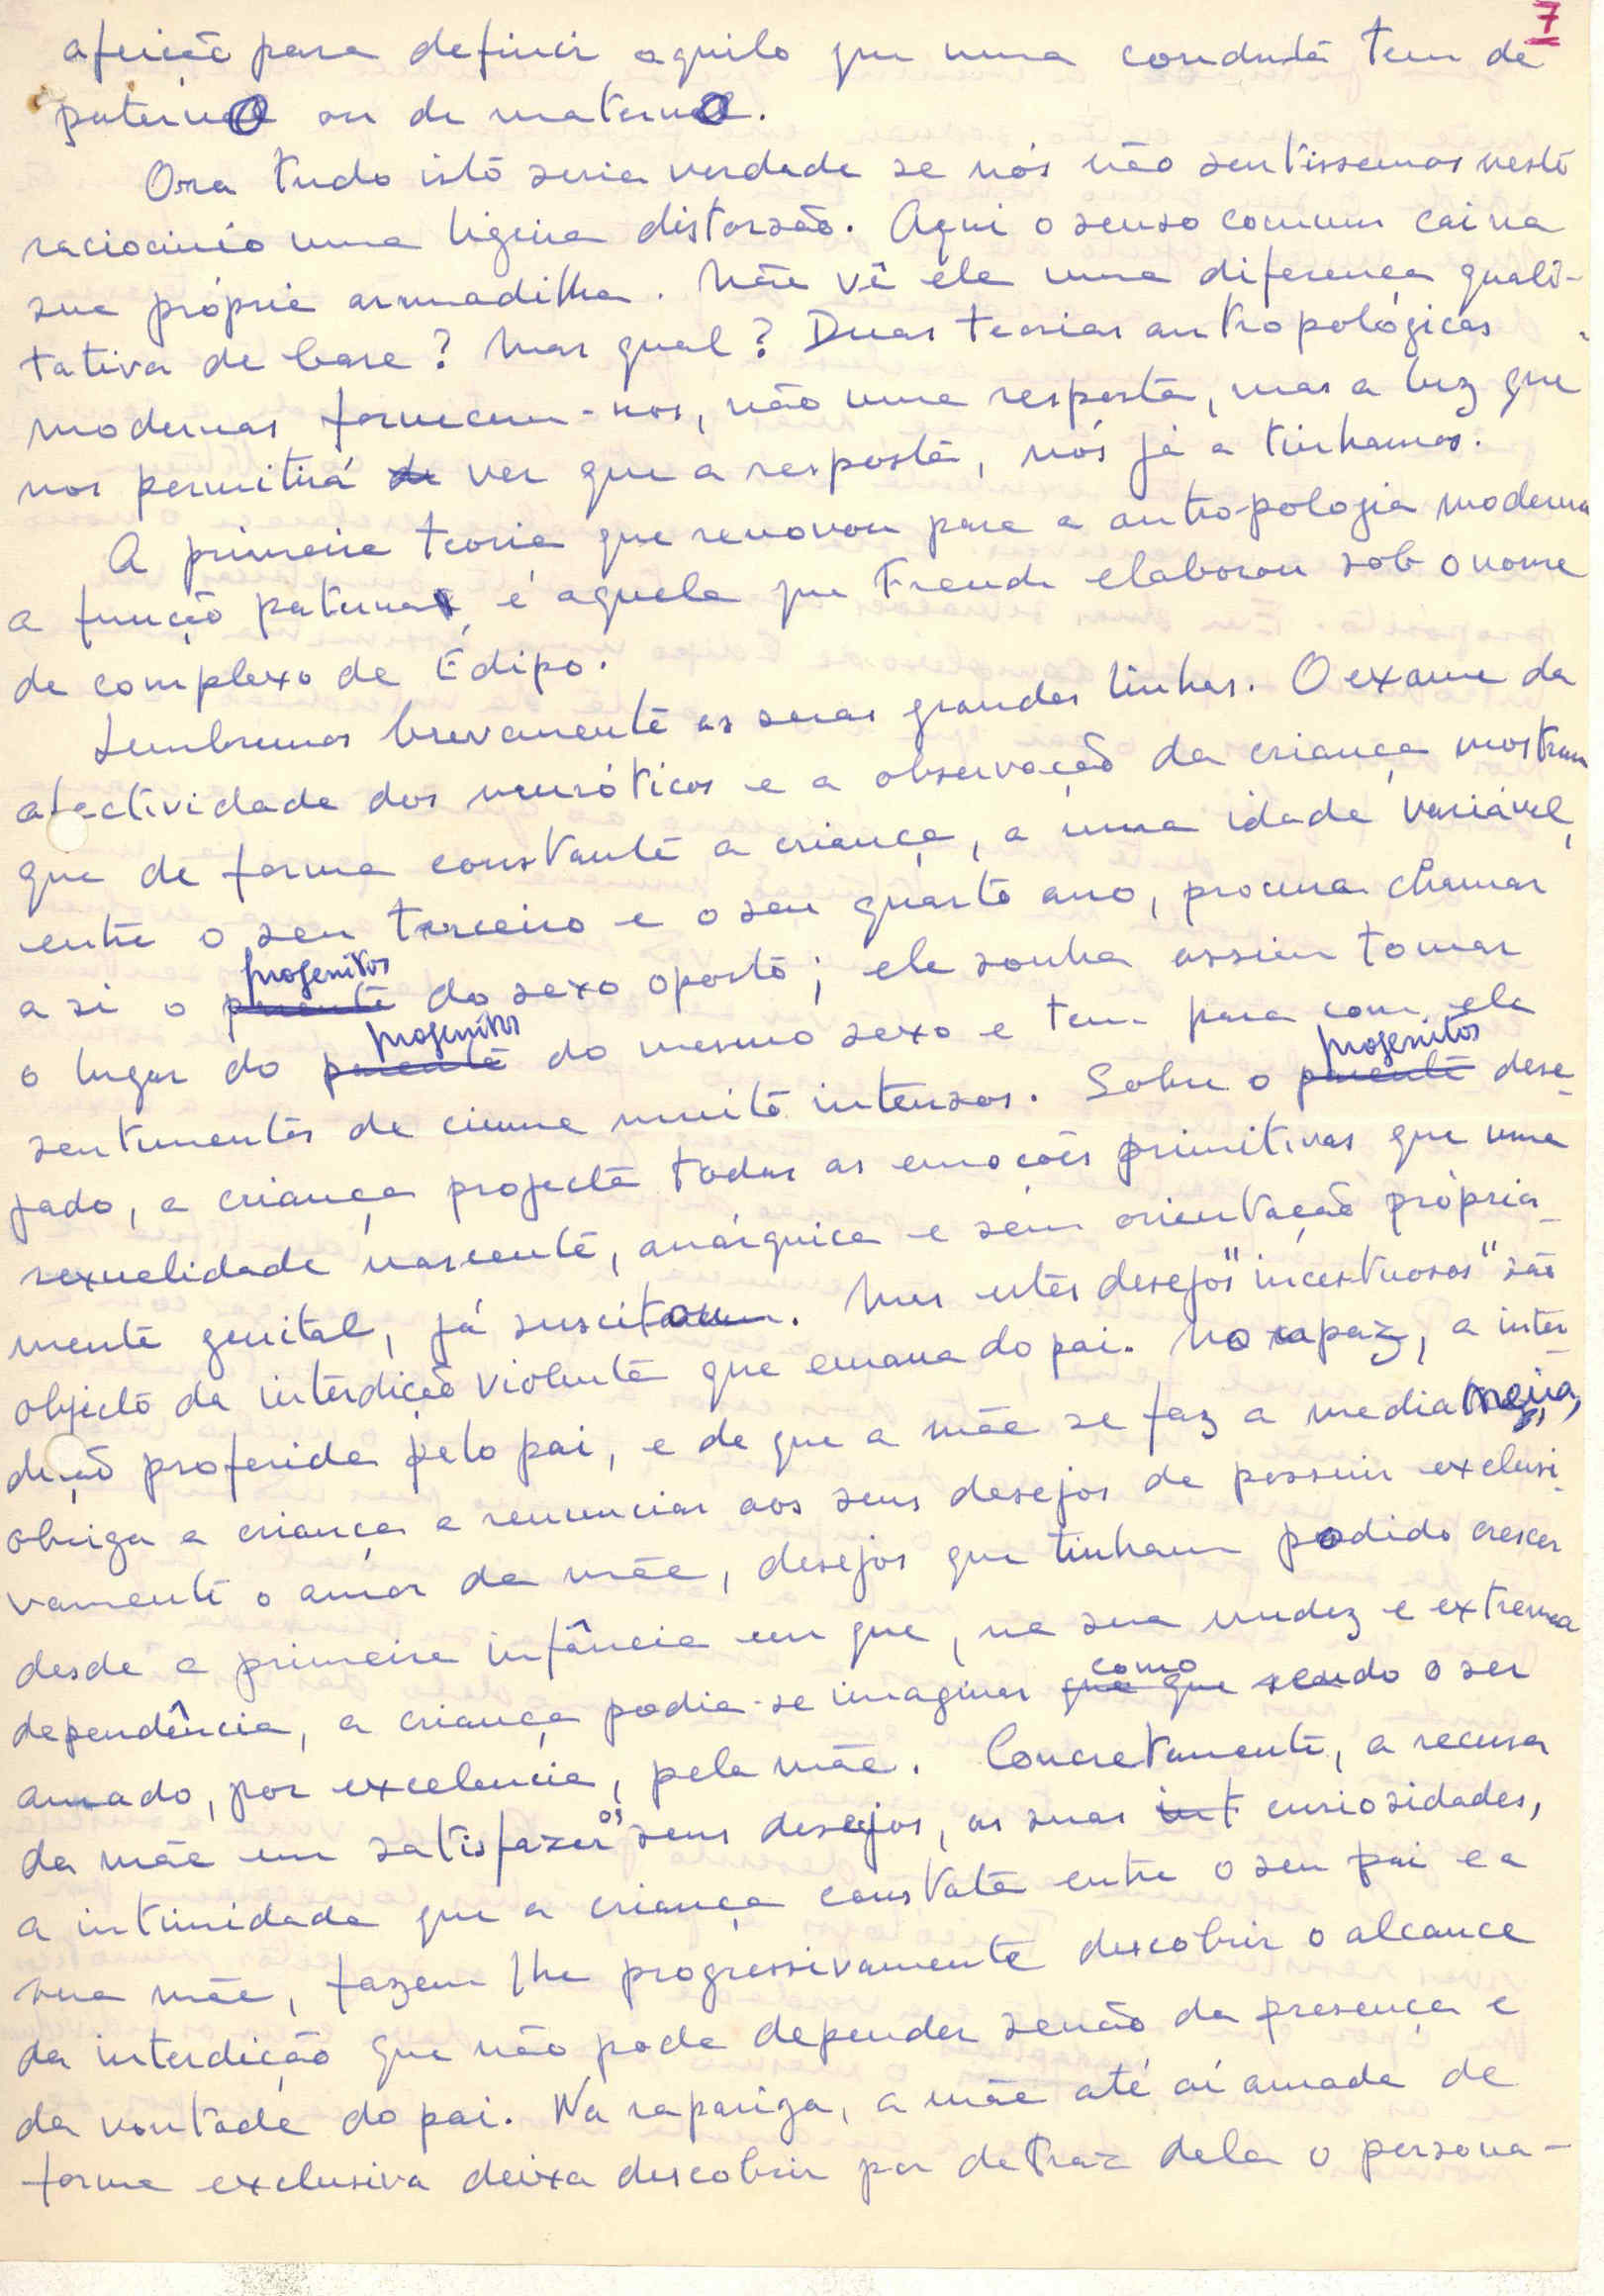 7
afeição para definir aquilo que uma conduta tem de
paterno ou de materno.
Ora tudo isto seria verdade se nós não sentissemos neste
raciocinio uma ligeira distorsão. Aqui o senso comum cai na
sua própria armadilha. Não vê ele uma diferença quali-
tativa de base? Mas qual? Duas teorias antropológicas
modernas fornecem-nos, não uma resposta, mas a luz que
nos permitirá de ver que a resposta, nós já a tinhamos.
A primeira teoria que renovou para a antropologia moderna
a função paterna, é aquela que Freud elaborou sob o nome
de complexo de Édipo.
Lembremos brevemente as suas grandes linhas. O exame da
afectividade dos neuróticos e a observação da criança mostram
que de forma constante a criança, a uma idade variável,
entre o seu terceiro e o seu quarto ano, procura chamar
a si o parente progenitor do sexo oposto; ele sonha assim tomar
o lugar do parente progenitor do mesmo sexo e tem para com ele
sentimentos de ciume muito intensos. Sobre o parente progenitor dese-
jado, a criança projecta todas as emoções primitivas que uma
sexualidade nascente, anárquica e sem orientação própria-
mente genital, já suscitam. Mas estes desejos "incestuosos" são
objecto da interdição violenta que emana do pai. No rapaz, a inter-
dição proferida pelo pai, e de que a mãe se faz a medianeira,
obriga a criança a renunciar aos seus desejos de possuir exclusi-
vamente o amor da mãe, desejos que tinham podido crescer
desde a primeira infância em que, na sua nudez e extrema
dependência, a criança podia-se imaginar que que como sendo o ser
amado, por excelencia, pela mãe. Concretamente, a recusa
da mãe em satisfazer os seus desejos, as suas int curiosidades,
a intimidade que a criança constata entre o seu pai e a
sua mãe, fazem lhe progressivamente descobrir o alcance
da interdição que não pode depender senão da presença e
da vontade do pai. Na rapariga, a mãe até aí amada de
forma exclusiva deixa descobrir por detraz dela o persona-